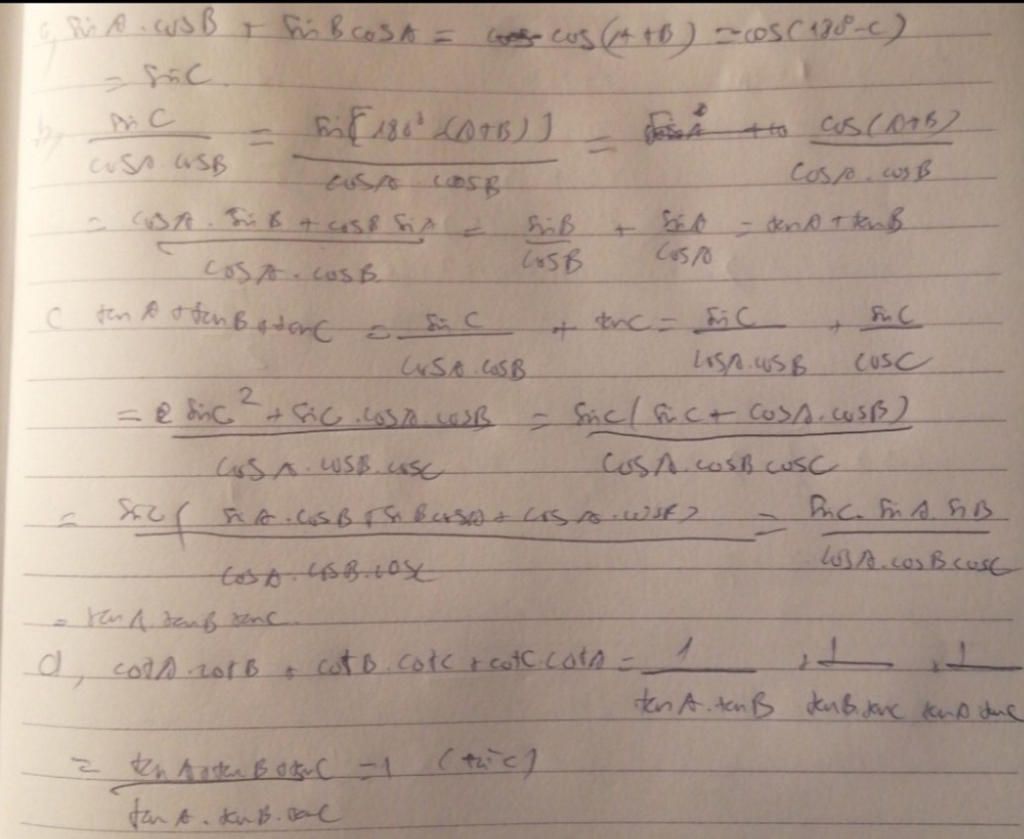 a, sin A . cos B + sin B cos A = cos (A+B) = cos (180° - C)
= sin C
b, sin C / cos A . cos B = sin [180° - (A+B)] / cos A cos B = cos (A+B) / cos A . cos B
= cos A . sin B + cos B sin A / cos A . cos B = sin B / cos B + sin A / cos A = tan A + tan B
c tan A + tan B + tan C = sin C / cos A . cos B + tan C = sin C / cos A . cos B + sin C / cos C
= sin C ² + sin C . cos A . cos B / cos A . cos B . cos C = sin C ( sin C + cos A . cos B ) / cos A . cos B cos C
= sin C ( sin A . cos B + sin B cos A + cos A . cos B ) / cos A . cos B . cos C = sin C . sin A . sin B / cos A . cos B cos C
= tan A tan B tan C
d, cot A . cot B + cot B . cot C + cot C . cot A = 1 / tan A . tan B + 1 / tan B . tan C + 1 / tan A tan C
= tan A + tan B + tan C / tan A . tan B . tan C = 1 (từ c)